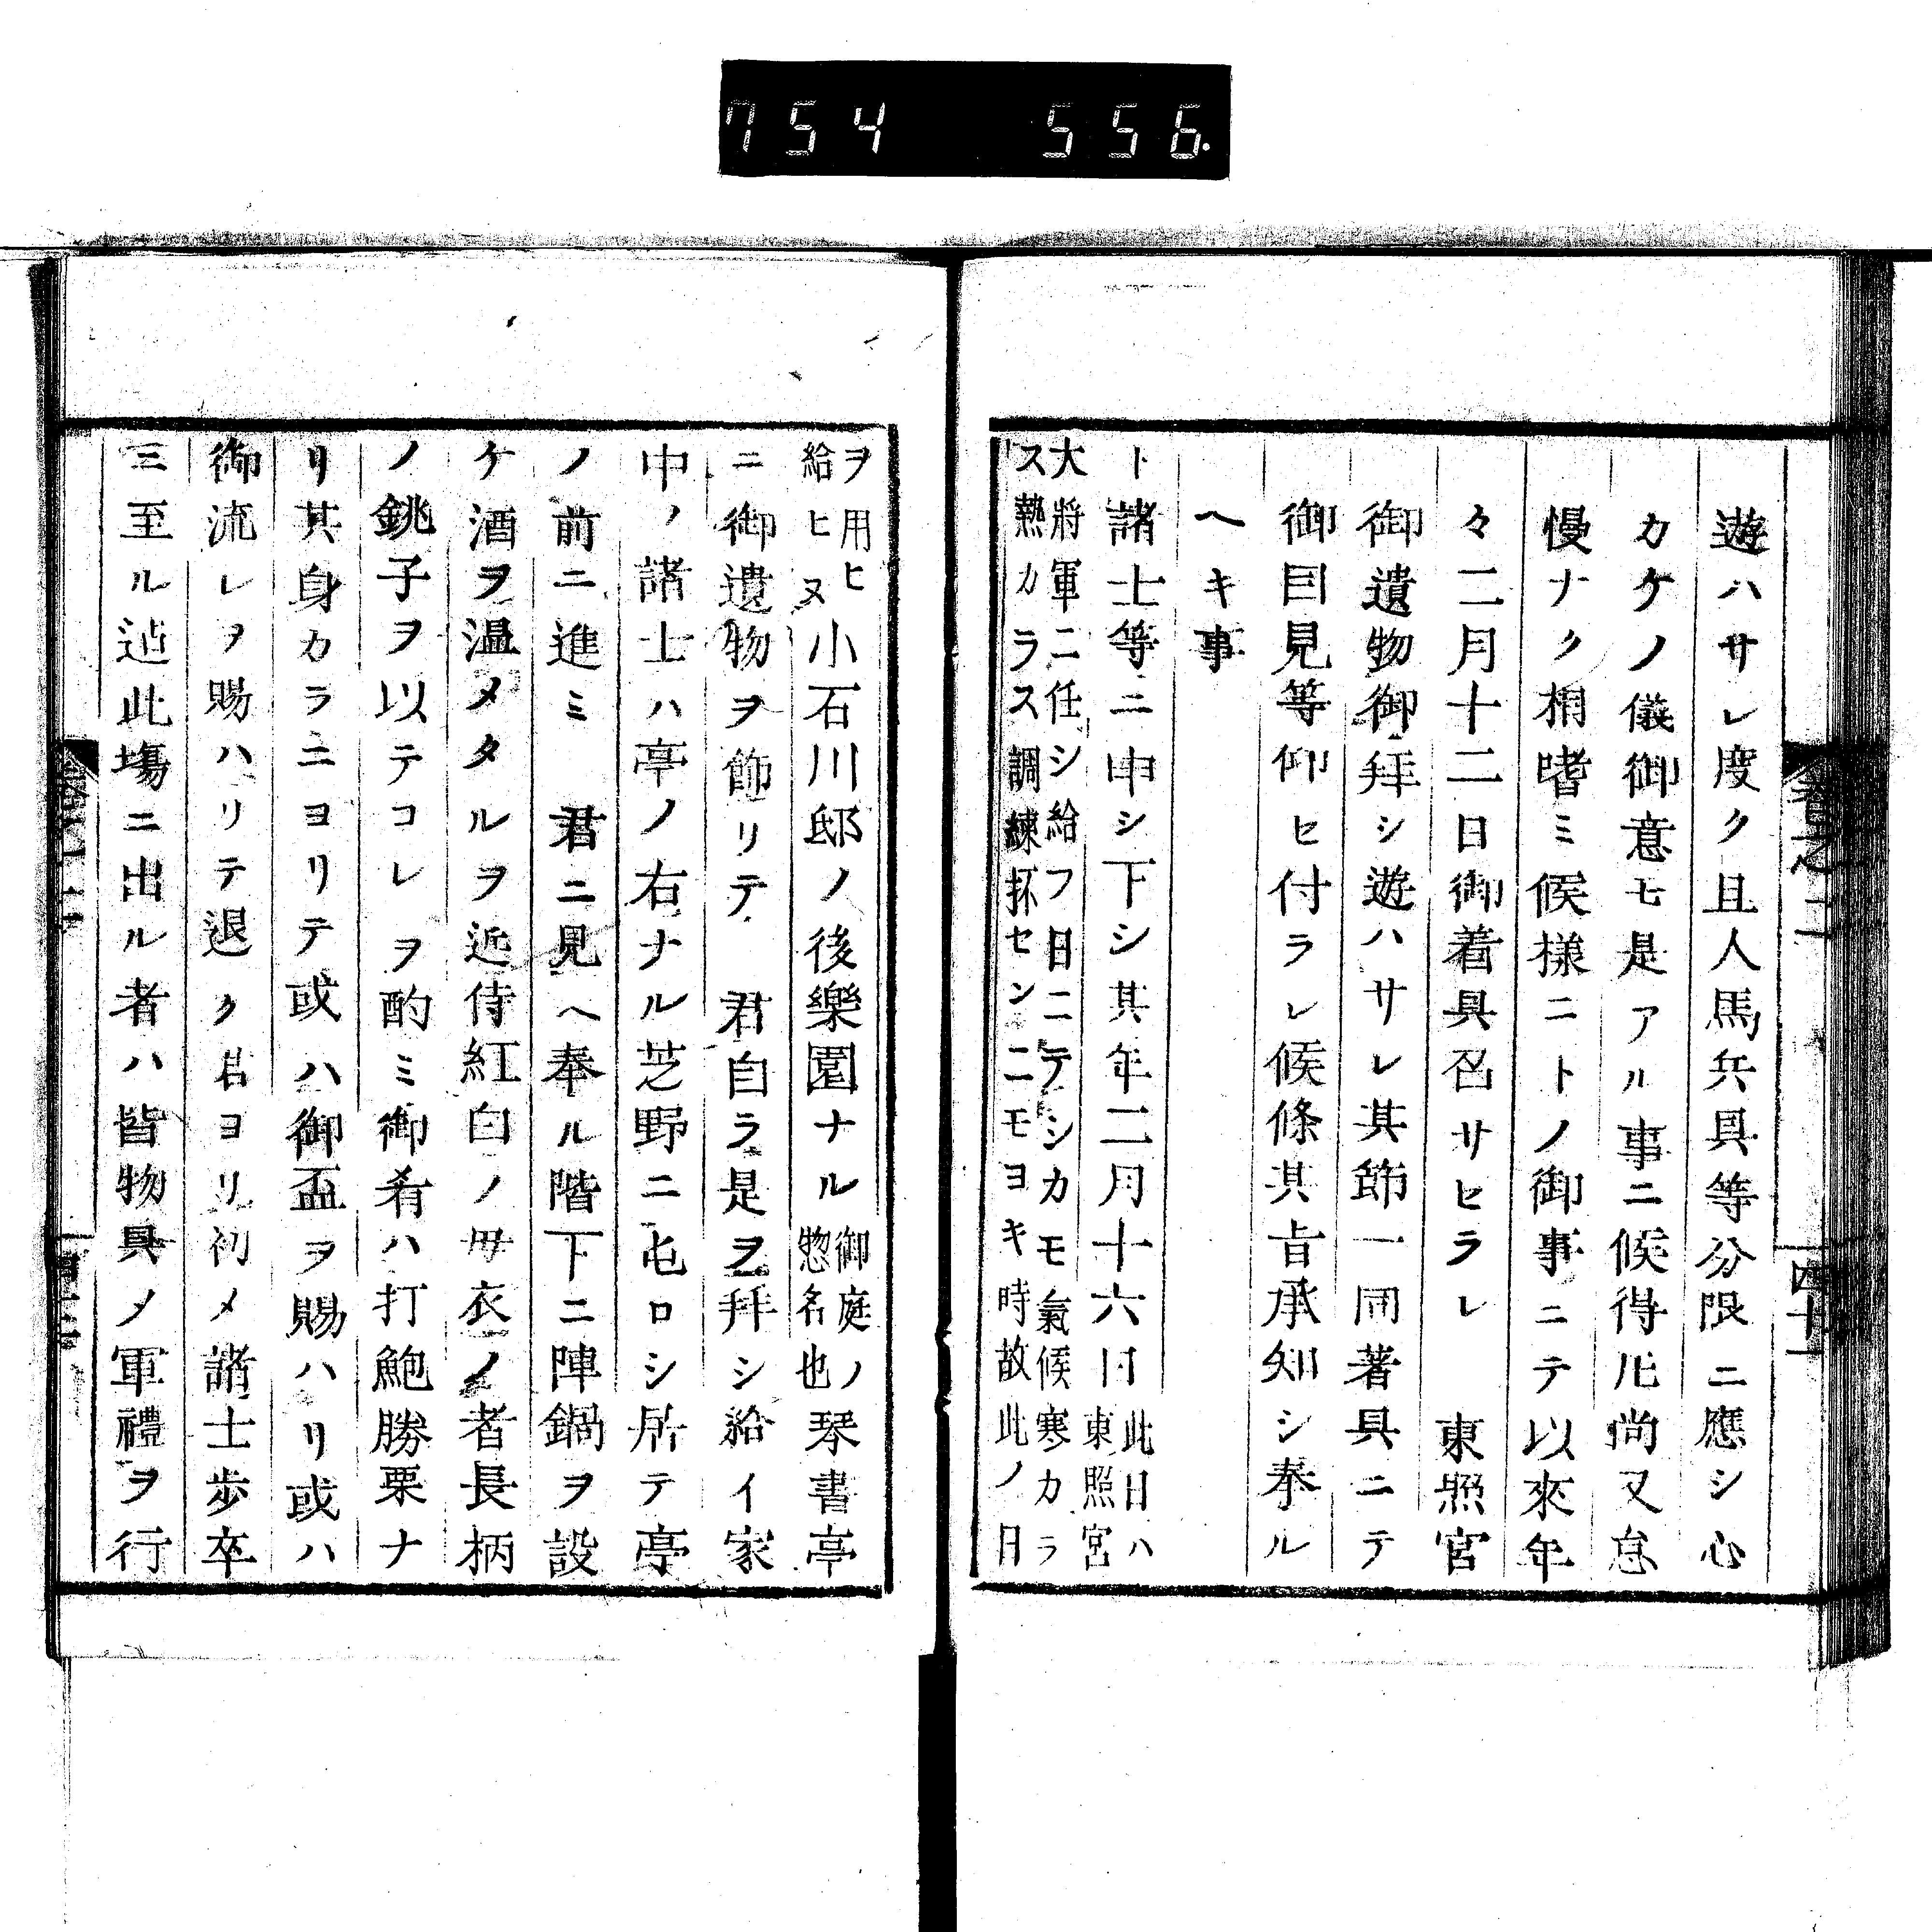 754 556.
遊ハサレ度ク且人馬兵具等分限ニ應シ心
カケノ儀御意モ是アル事ニ候得𪜈尚又怠
慢ナク相嗜ミ候樣ニトノ御事ニテ以來年
々二月十二日御着具召サセラレ 東照宮
御遺物御拜シ遊ハサレ其節一同著具ニテ
御目見等仰セ付ラレ候條其旨承知シ奉ル
ヘキ事
ト諸士等ニ申シ下シ其年二月十六日
此日ハ
東照宮
大將軍ニ任シ給フ日ニテシカモ氣候寒カラ
ス熱カラス調練抔センニモヨキ時故此ノ日
ヲ用ヒ
給ヒヌ
小石川邸ノ後樂園ナル
御庭ノ
惣名也
琴書亭
ニ御遺物ヲ飾リテ 君自ラ是ヲ拜シ給イ家
中ノ諸士ハ亭ノ右ナル芝野ニ屯ロシ居テ亭
ノ前ニ進ミ 君ニ見ヘ奉ル階下ニ陣鍋ヲ設
ケ酒ヲ温メタルヲ近侍紅白ノ母衣ノ者長柄
ノ銚子ヲ以テコレヲ酌ミ御肴ハ打鮑勝栗ナ
リ其身カラニヨリテ或ハ御盃ヲ賜ハリ或ハ
御流レヲ賜ハリテ退ク君ヨリ初メ諸士歩卒
ニ至ル迠此塲ニ出ル者ハ皆物具ノ軍禮ヲ行